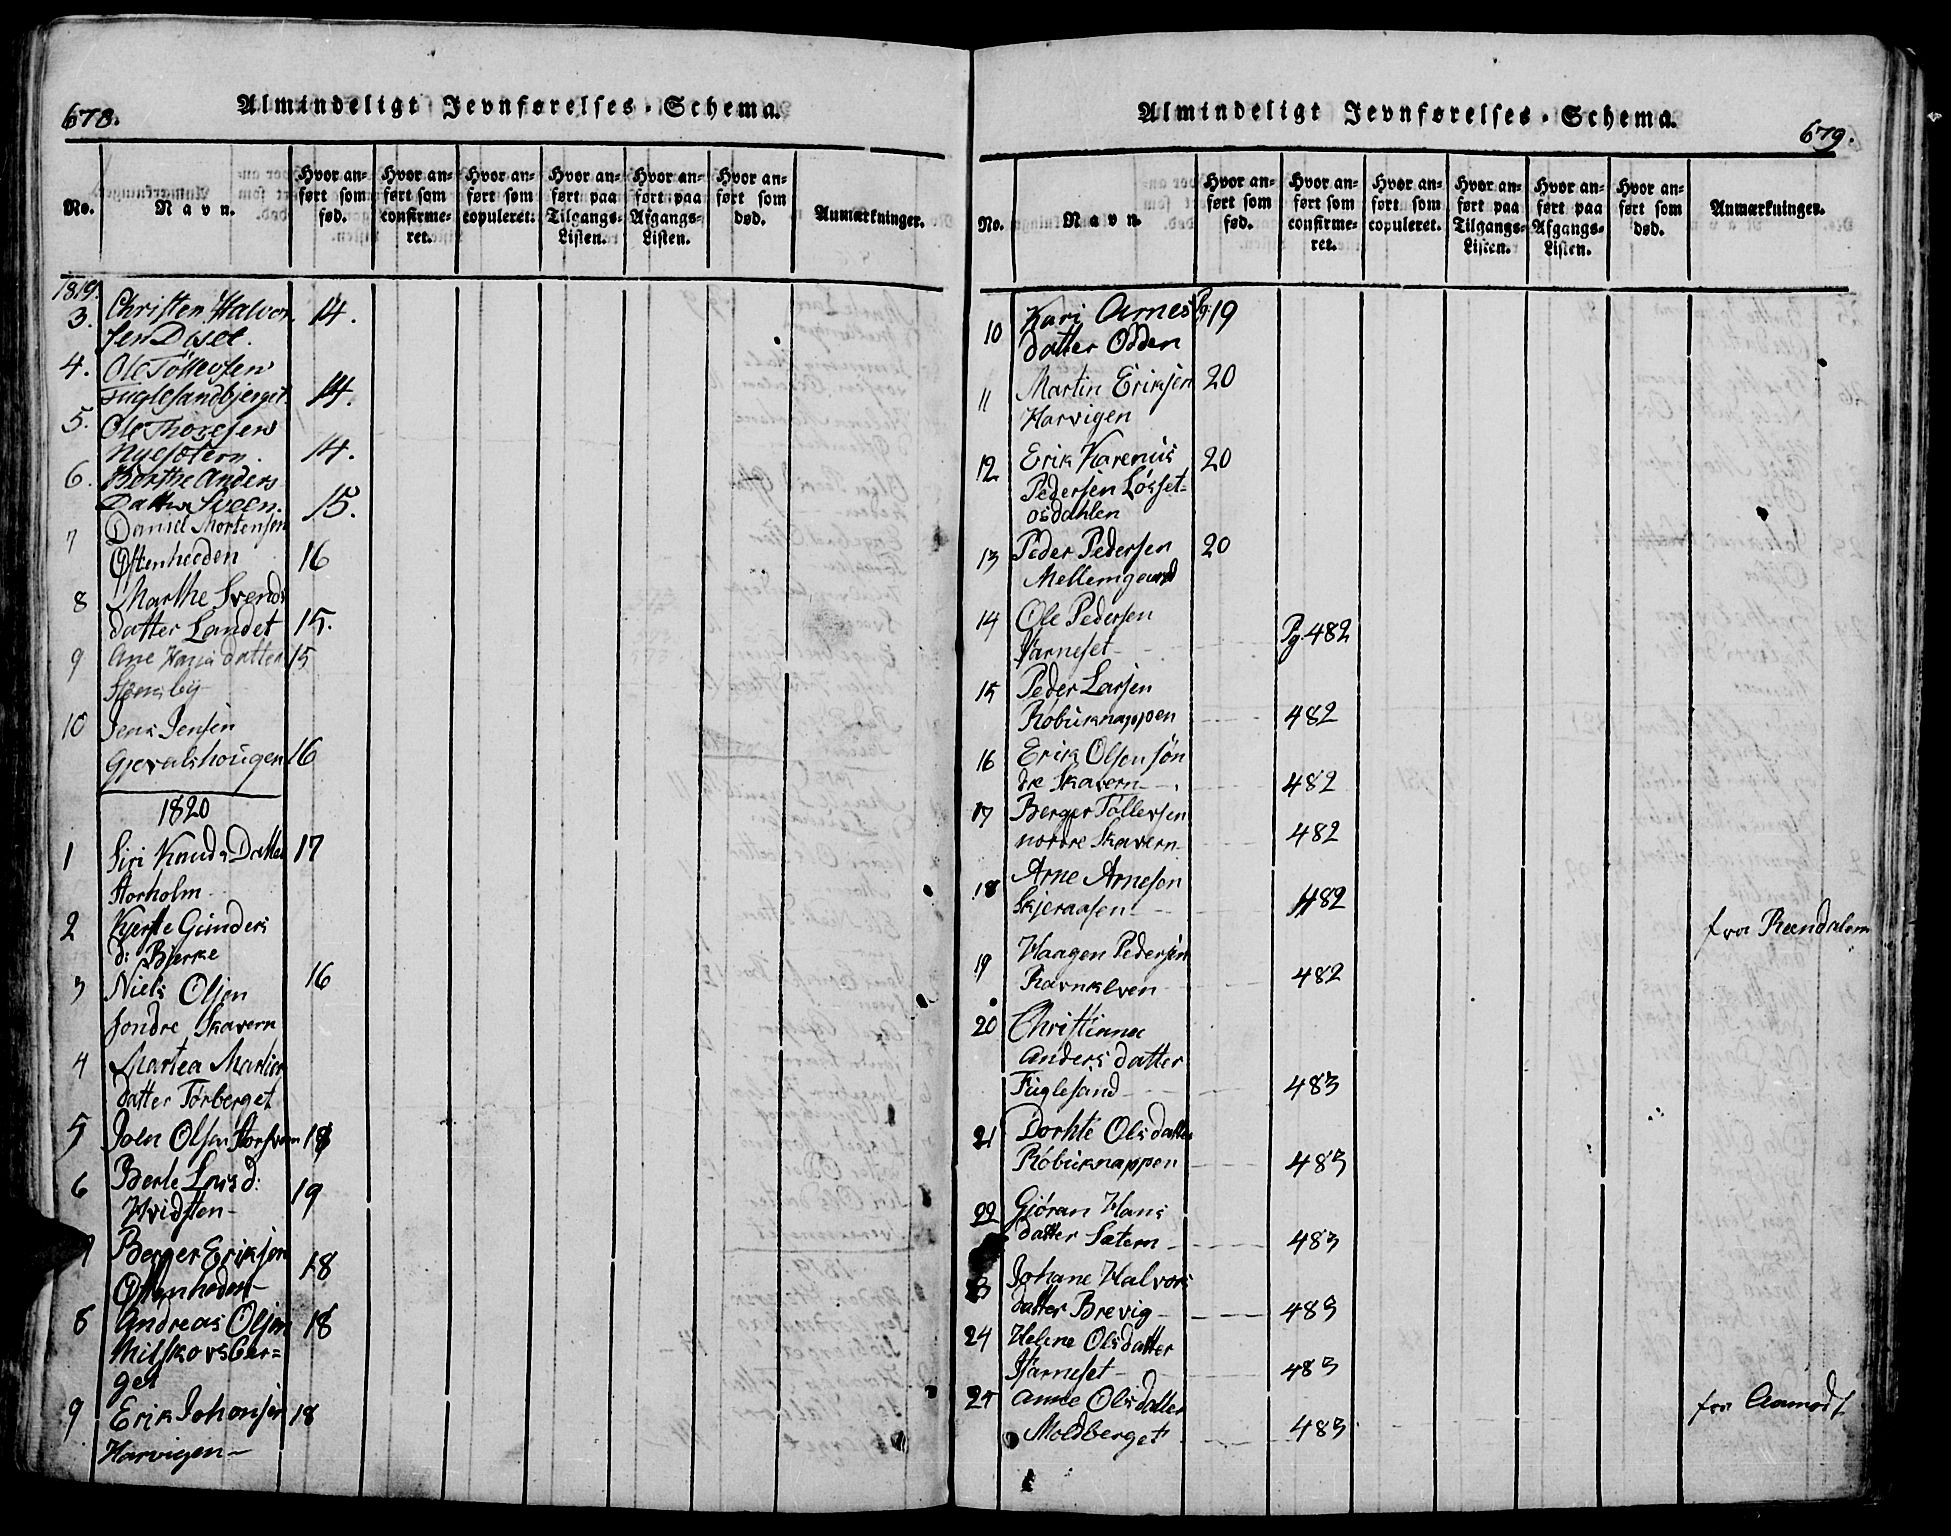 678.
Almindeligt Jevnførelses-Schema.
No.
Navn.
Hvor an-
ført som
fød.
Hvor an-
ført som
confirme-
ret.
Hvor an-
ført som
copuleret.
Hvor an-
ført paa
Tilgangs-
Listen.
Hvor an-
ført paa
Afgangs-
Listen.
Hvor an-
ført som
død.
Anmærkninger.
1819.
3. Christen Halvor 14.
sen Diset.
4. Ole Tøllefsen
Fuglesandbjerget. 14.
5. Ole Thoresen
Nyesætern. 14.
6. Berthe Anders
Datter Sveen. 15.
7 Daniel Mortensen
Østenheeden 16
8 Marthe Svends
datter Landet 15.
9 Ane datter 15
Stensby
10 Jens Jensen
Gjevalshougen 16
1820
1 Siri Knuds Datter 17
Storholm
2 Kjerste Gunders
d: Bjerke 16
3 Niels Olsen
søndre Skavern
4 Martea Martins
datter Tørberget
5 Joen Olsen 18
6 Berte Larsd: 19
Hvidsten-
7 Berger Eriksen 18
Østenheden-
8 Andreas Olsen 18
Milskovsber=
get
9 Erik Johansen 18
Harvigen-
Almindeligt Jevnførelses-Schema.
679.
No.
Navn.
Hvor an-
ført som
fød.
Hvor an-
ført som
confirme-
ret.
Hvor an-
ført som
copuleret.
Hvor an-
ført paa
Tilgangs-
Listen.
Hvor an-
ført paa
Afgangs-
Listen.
Hvor an-
ført som
død.
Anmærkninger.
10 Kari Arnes Pg: 19
datter Odden
11 Martin Eriksen 20
Harvigen
12 Erik Karenus 20
Pedersen Løsset=
osdahlen
13 Peder Pedersen 20
Mellemgaard
14 Ole Pedersen
Varneset- Pg. 482
15 Peder Larsen
Røbuknappen 482
16 Erik Olsen søn
dre Skavern 482
17 Berger Tøllersen
nordre Skavern 482
18 Arne Arnesen
Skjeraasen 482 fra Reendalem
19 Haagen Pedersen
Ravnkleven 482
20 Christianna
Anders datter
Fuglesand 483
21 Dorhte Ols datter
Røbuknappen 483
22 Gjøran Hans
datter Sætern 483
23 Johane Halvors
datter Brevig 483
24 Helene Olsdatter
Varneset- 483
25 Anne Olsdatter fra Aamodt
Moldberget 483